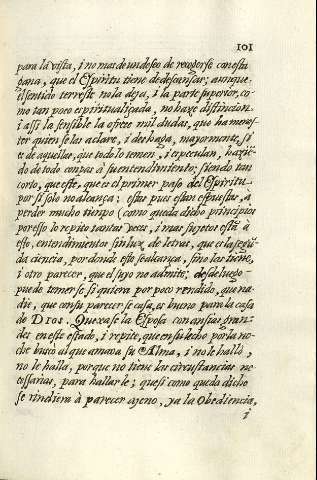 101
para la vista, i no mas de un deseo de recogerse con esta
gana, que el Espiritu tiene de descansar; aunque
el sentido terrestre no la deja, i la parte superior, co-
mo tan poco espiritualizada, no haze distincion
i assi la sensible la ofrece mil dudas, que ha menes-
ter quien se las aclare, i deshaga, mayormente, si
es de aquellas, que todo lo temen, i especulan, hazié-
do de todo conpas a su entendimiento; siendo tan
corto, que este, que es el primer paso del Espiritu
por si solo no alcança; estas pues estan espuestas, à
perder mucho tienpo (como queda dicho principios
por esso lo repito tantas veces, i mas sujetos està à
esso, entendimientos sin luz de letras, que es la segũ-
da ciencia, por donde esto se alcança, sino las tiene,
i otro parecer, que el suyo no admite; desde luego
puede tenerse si quiera por poco rendido, que na-
die, que con su parecer se casa, es bueno para la casa
de DIOS. Quexase la Esposa con ansias gran-
des en este estado, i repite, que en su lecho por la no-
che buscò al que amava su Alma, i no le hallò,
no le halla, porque no tiene las circunstancias ne-
cessarias, para hallarle; que si como queda dicho
se rindiera à parecer ageno, ya la Obediencia,
i